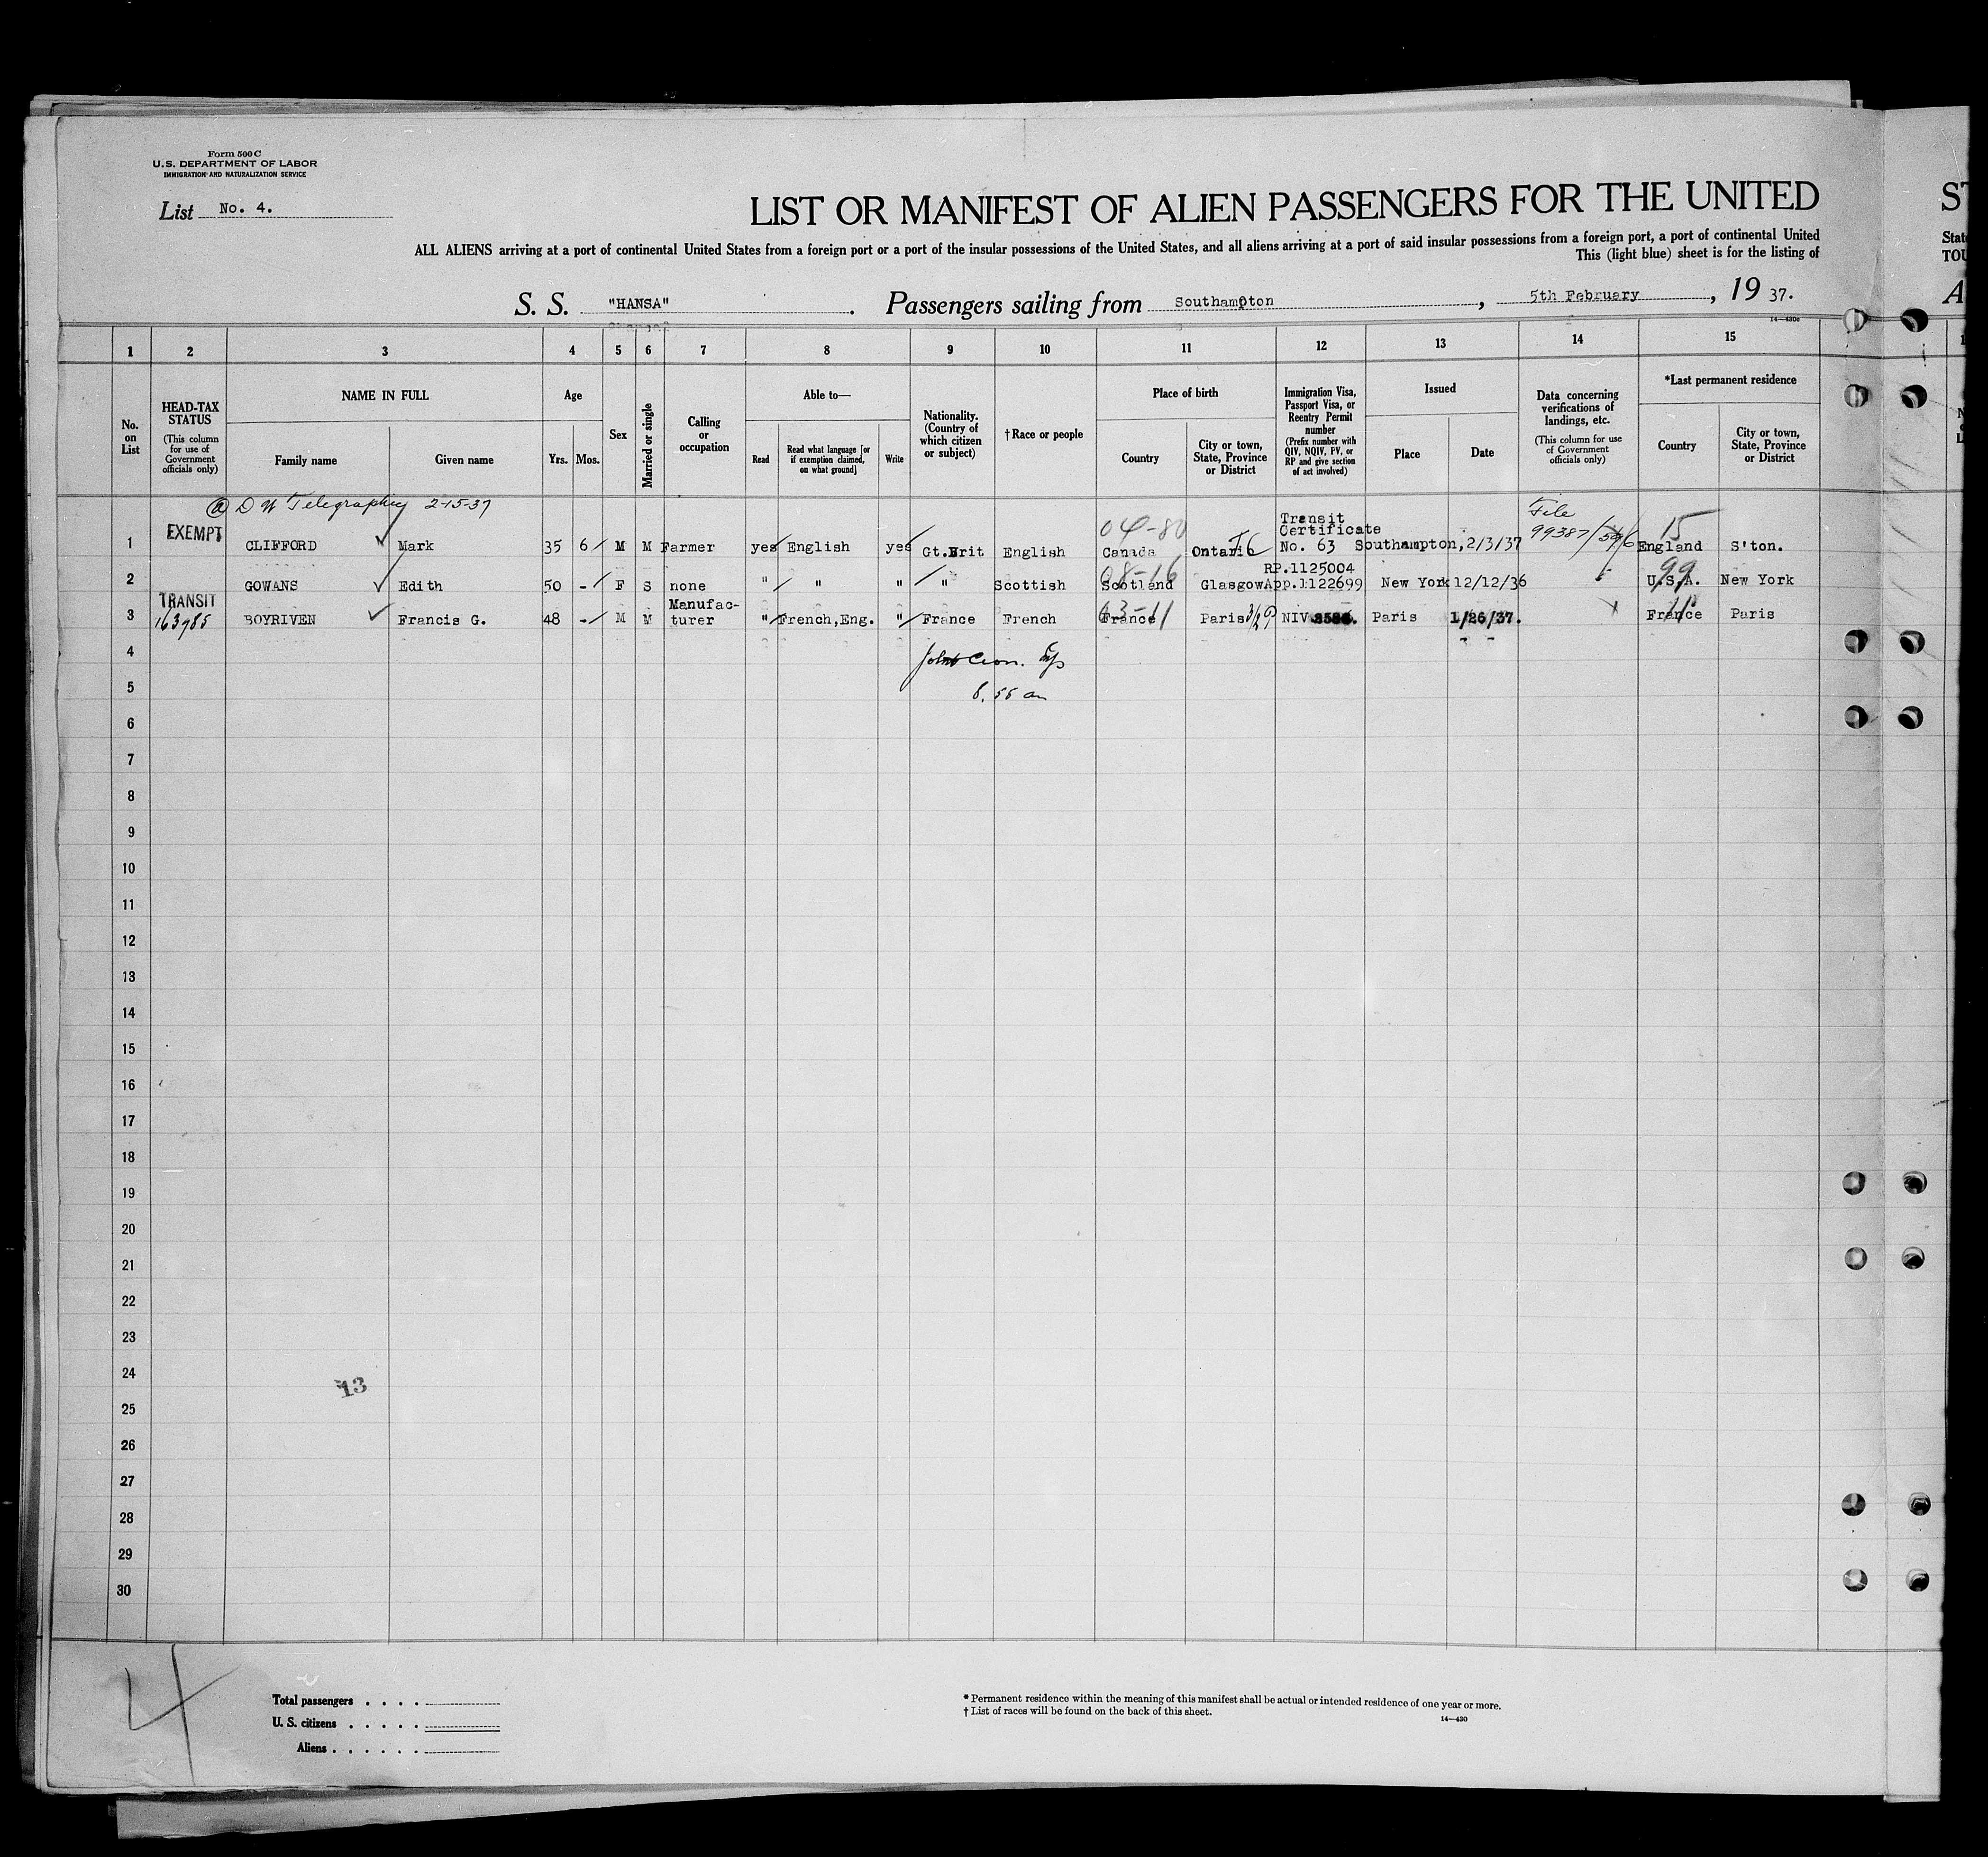 Form 500 C
U.S. DEPARTMENT OF LABOR
IMMIGRATION AND NATURALIZATION SERVICE
List No. 4.
LIST OR MANIFEST OF ALIEN PASSENGERS FOR THE UNITED
ALL ALIENS arriving at a port of continental United States from a foreign port or a port of the insular possessions of the United States, and all aliens arriving at a port of said insular possessions from a foreign port, a port of continental United
This (light blue) sheet is for the listing of
S. S. "HANSA". Passengers sailing from Southampton, 5th February, 19 37.
14—430c
1 2 3 4 5 6 7 8 9 10 11 12 13 14 15
No. on List
HEAD-TAX STATUS (This column for use of Government officials only)
NAME IN FULL
Family name
Given name
Age
Yrs. Mos.
Sex
Married or single
Calling or occupation
Able to—
Read
Read what language [or if exemption claimed, on what ground]
Write
Nationality. (Country of which citizen or subject)
†Race or people
Place of birth
Country
City or town, State, Province or District
Immigration Visa, Passport Visa, or Reentry Permit number (Prefix number with QIV, NQIV, PV, or RP and give section of act involved)
Issued
Place
Date
Data concerning verifications of landings, etc. (This column for use of Government officials only)
*Last permanent residence
Country
City or town, State, Province or District
Telegraphic 2-15-37
File
04-80
15
Transit Certificate
1 EXEMPT CLIFFORD Mark 35 6 M M Farmer yes English yes Gt.Brit English Canada Ontario No. 63 Southampton, 2/3/37 England S'ton.
08-16 99
RP.1125004
2 GOWANS Edith 50 - F S none " " " " Scottish Scotland Glasgow App.1122699 New York 12/12/36 U.S.A. New York
TRANSIT
3 163985 BOYRIVEN Francis G. 48 - M M Manufac-turer " French,Eng. " France French France Paris NIV Paris 1/26/37. France Paris
03-11 11
4
5
6
7
8
9
10
11
12
13
14
15
16
17
18
19
20
21
22
23
24
13
25
26
27
28
29
30
4
Total passengers . . . .
U. S. citizens . . . . .
Aliens . . . . . .
* Permanent residence within the meaning of this manifest shall be actual or intended residence of one year or more.
† List of races will be found on the back of this sheet.
14—430